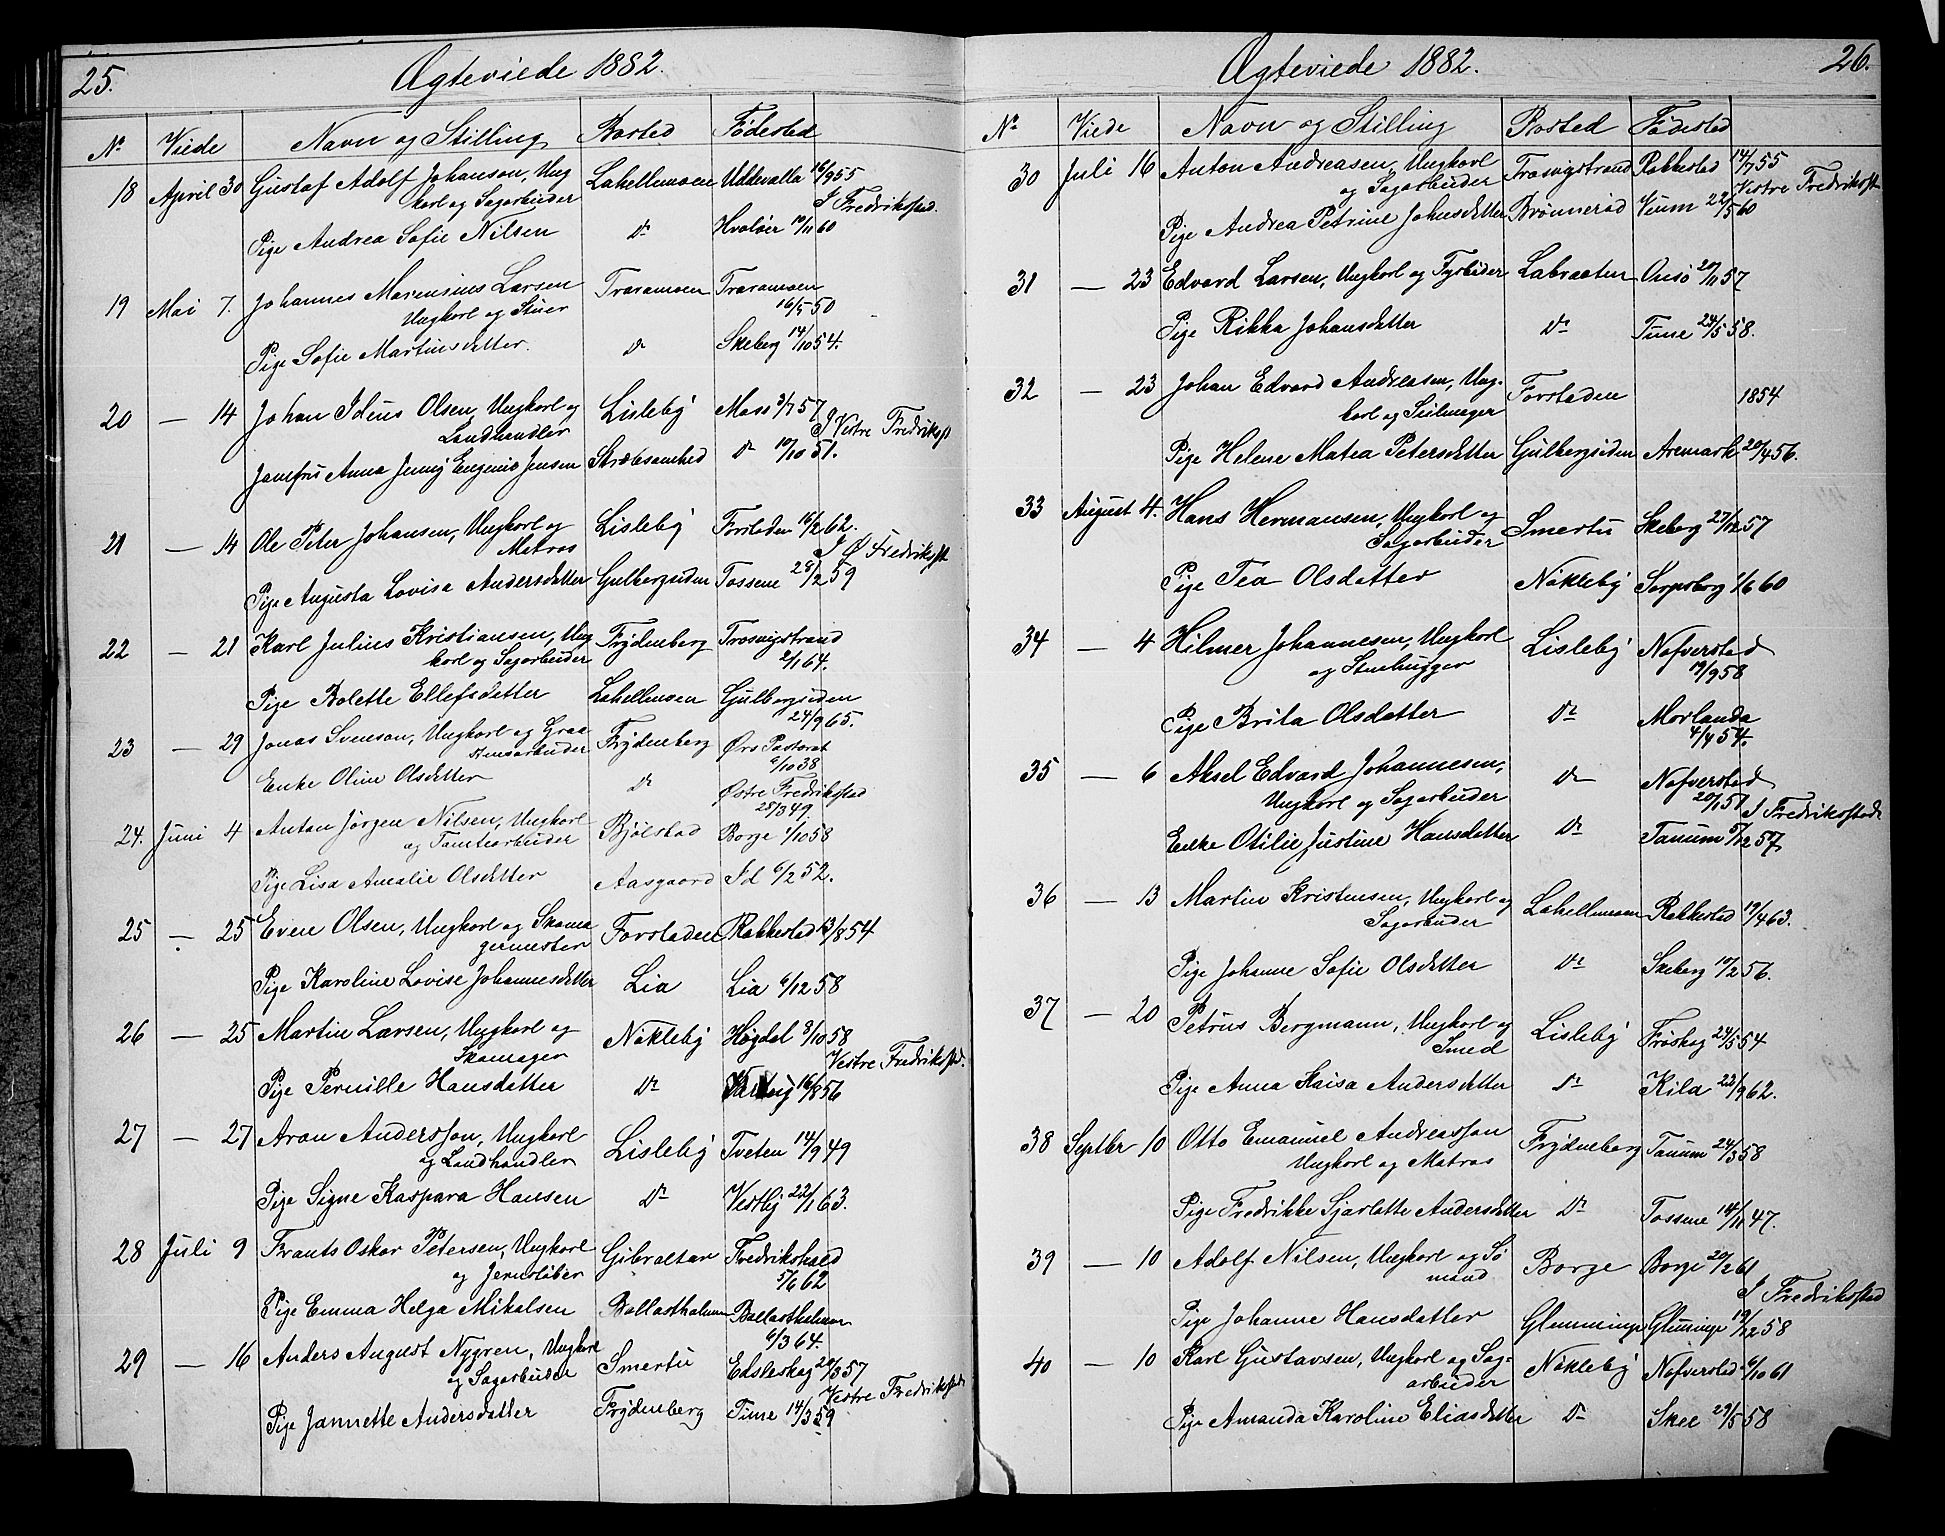 25. Ægteviede 1882.
No Viede Navn og Stilling Bosted Fødested
18 April 30 Gustaf Adolf Johanson, Ung Lahellmoen Uddevalla 16/9 55
karl og Sagarbeider I Fredriksstad.
Pige Andrea Sofie Nilsen do Hvaløer 19/11 60
19 Mai 7. Johannes Marensius Larsen Traramoen Traramoen
Ungkarl og Stuer 16/5 50
Pige Sofie Martinsdatter. do Skeberg 14/10 54.
20 — 14 Johan Ideus Olsen, Ungkarl og Lisleby Moss 3/7 57
Landhandler I Vestre Fredriksst
Jomfru Anna Jenny Eugenie Jensen Stræbsomhed do 19/10 51.
21 — 14 Ole Peter Johansen, Ungkarl og Lisleby Forstaden 16/2 62.
Matros I Ø Fredriksst
Pige Augusta Lovise Andersdatter Gulbergsiden Tossene 28/2 59
22 — 21 Karl Julius Kristiansen, Ung Frydenberg Trosvigstrand
karl og Sagarbeider 2/1 64.
Pige Bolette Ellefsdatter Lahellmoen Gulbergsiden
24/9 65.
23 — 29 Jonas Svenson, Ungkarl og Graa Frydenberg Ørs Pastorat
stensarbeider 6/10 38
Enke Oline Olsdatter do Østre Fredriksstad
28/3 49.
24. Juni 4 Anton Jørgen Nilsen, Ungkarl Bjølstad Borge 1/10 58
og Tomtearbeider
Pige Lisa Amalie Olsdatter Aasgaard Id 6/2 52.
25 — 25 Even Olsen, Ungkarl og Skoma Forstaden Rakkestad 13/8 54
germester
Pige Karoline Lovise Johannesdatter Lia Lia 6/12 58
26 — 25 Martin Larsen, Ungkarl og Nøkleby Høgdal 8/10 58
Skomager Vestre Fredriksstad.
Pige Pernille Hansdatter do 16/8 56
27 — 27 Aron Andersson, Ungkarl Lisleby Tveten 14/9 49
og Landhandler
Pige Signe Kaspara Hansen do Vestby 22/1 63.
28 Juli 9 Frants Oskar Petersen, Ungkarl Gibraltar Fredrikshald
og Jernstøber 5/6 62
Pige Emma Helga Mikalsen Ballastholmen Ballastholmen
6/3 64.
29 — 16 Anders August Nygren, Ungkarl Smertu Edsleskog 20/3 57
og Sagarbeider Vestre Fredriksstad
Pige Jannette Andersdatter Frydenberg Tune 14/3 59
Ægteviede 1882. 26.
No Viede Navn og Stilling Bosted Fødested
30 Juli 16 Anton Andreasen, Ungkarl Trosvigstrand Rakkestad 14/7 55
og Sagarbeider Vestre Fredriksst
Pige Andrea Petrine Johnsdatter Brønnerød Veum 22/5 60
31 — 23 Edvard Larsen, Ungkarl og Fyrbøder Labraaten Onsø 20/11 57
Pige Rikka Johansdatter do Tune 24/5 58.
32 — 23 Johan Edvard Andreasen, Ung- Forstaden 1854
karl og Seilmager
Pige Helene Matea Petersdatter Gulbergsiden Aremark 20/4 56.
33 August 4. Hans Hermansen, Ungkarl og Smertu Skeberg 27/12 57
Sagarbeider
Pige Tea Olsdatter Nøkleby Sarpsborg 1/6 60
34 — 4 Hilmer Johannesen, Ungkarl Lisleby Nafverstad
og Stenhugger 19/9 58
Pige Brita Olsdatter do Morlanda
4/4 54.
35 — 6 Aksel Edvard Johannesen, do Nafverstad
Ungkarl og Sagarbeider 20/1 51 I Fredriksstad
Enke Otilie Justine Hansdatter do Tanum 5/12 57
36 — 13 Martin Kristensen, Ungkarl og Lahellmoen Rakkestad 19/4 63.
Sagarbeider
Pige Johanne Sofie Olsdatter do Skeberg 19/2 56.
37 — 20 Petrus Bergmann, Ungkarl og Lisleby Frøskog 24/5 54
Smed
Pige Anna Kaisa Andersdatter do Kila 22/9 62.
38 Septbr 10 Otto Emanuel Andreasson Frydneberg Tanum 24/3 58
Ungkarl og Matros
Pige Fredrikke Sjarlotte Andersdatter do Tossene 14/11 47.
39 — 10 Adolf Nilsen, Ungkarl og Sø Borge Borge 20/2 61
mand I Fredriksstad
Pige Johanne Hansdatter Glemminge Glemminge 19/12 58
40 — 10 Karl Gustavsen, Ungkarl og Sag- Nøkleby Nafverstad 6/10 61
arbeider
Pige Amanda Karoline Eliasdatter do Skee 29/5 58